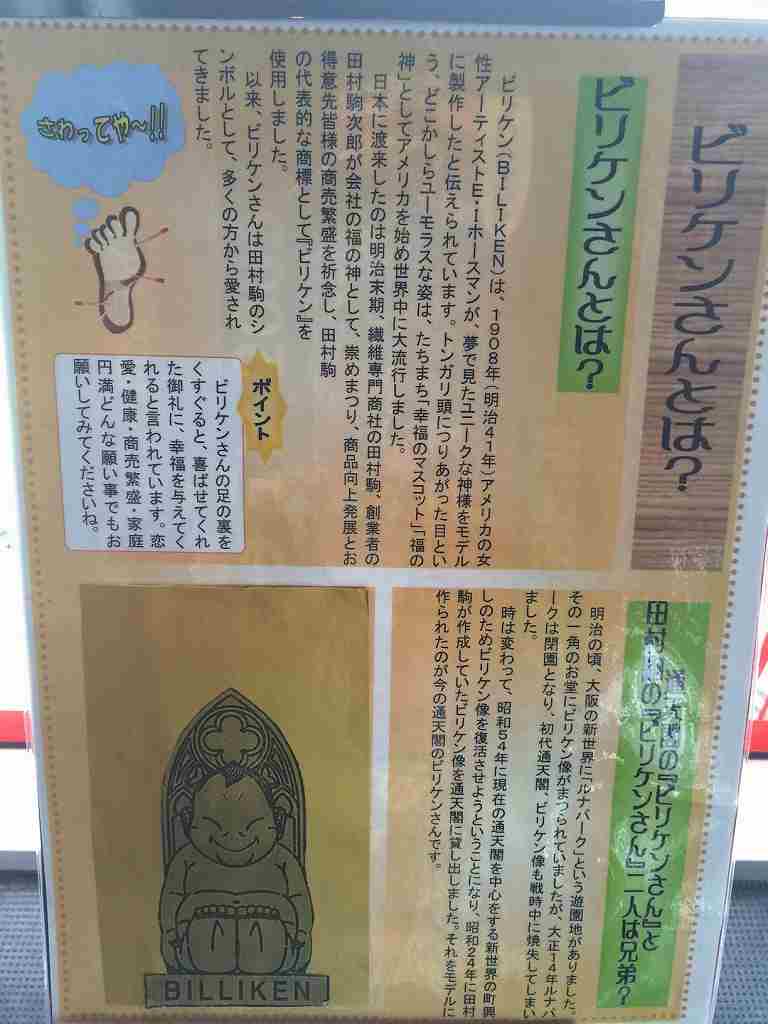 ビリケンさんとは？
ビリケンさんとは？
ビリケン（BILIKEN）は、1908年（明治41年）アメリカの女
性アーティストE・Iホースマンが、夢で見たユニークな神様をモデル
に製作したと伝えられています。トンガリ頭につりあがった目とい
う、どこかしらユーモラスな姿は、たちまち「幸福のマスコット」「福の
神」としてアメリカを始め世界中に大流行しました。
日本に渡来したのは明治末期、繊維専門商社の田村駒、創業者の
田村駒次郎が会社の福の神として、崇めまつり、商品向上発展とお
得意先皆様の商売繁盛を祈念し、田村駒
の代表的な商標として『ビリケン』を
使用しました。
以来、ビリケンさんは田村駒のシ
ンボルとして、多くの方から愛され
てきました。
さわってや〜!!
ポイント
ビリケンさんの足の裏を
くすぐると、喜ばせてくれ
た御礼に、幸福を与えてく
れると言われています。恋
愛・健康・商売繁盛・家庭
円満どんな願い事でもお
願いしてみてくださいね。
通天閣の『ビリケンさん』と
田村駒の『ビリケンさん』二人は兄弟？
明治の頃、大阪の新世界に「ルナパーク」という遊園地がありました。
その一角のお堂にビリケン像がまつられていましたが、大正14年ルナパ
ークは閉園となり、初代通天閣、ビリケン像も戦時中に焼失してしまい
ました。
時は変わって、昭和54年に現在の通天閣を中心をする新世界の町興
しのためビリケン像を復活させようということになり、昭和24年に田村
駒が作成していたビリケン像を通天閣に貸し出しました。それをモデルに
作られたのが今の通天閣のビリケンさんです。
BILLIKEN